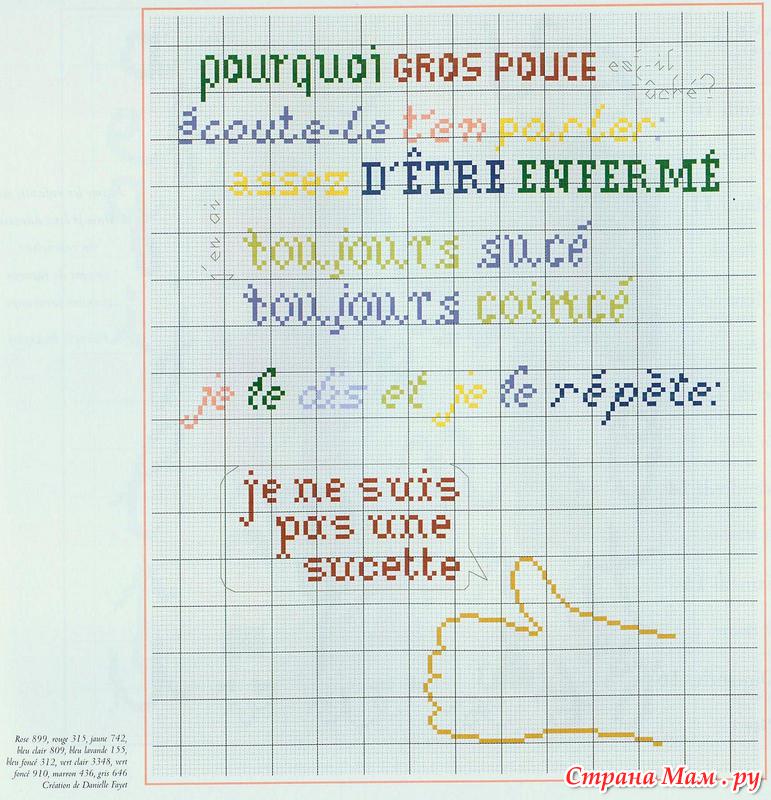 pourquoi GROS POUCE est-il
fâché?
écoute-le t'en parler:
j'en ai
assez D'ÊTRE ENFERMÉ
toujours sucé
toujours coincé
je le dis et je le répète:
je ne suis
pas une
sucette
Rose 899, rouge 315, jaune 742,
bleu clair 809, bleu lavande 155,
bleu foncé 312, vert clair 3348, vert
foncé 910, marron 436, gris 646
Création de Danielle Fayet
Страна Мам.ру